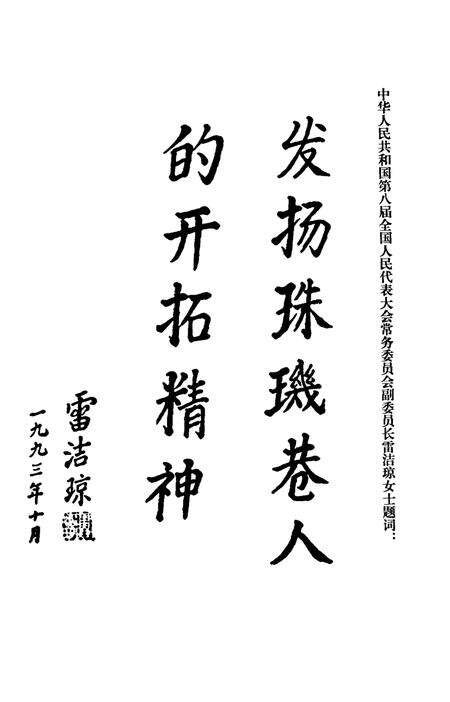 中华人民共和国第八届全国人民代表大会常务委员会副委员长雷洁琼女士题词：
发扬珠璣巷人
的开拓精神
雷洁琼
一九九三年十月